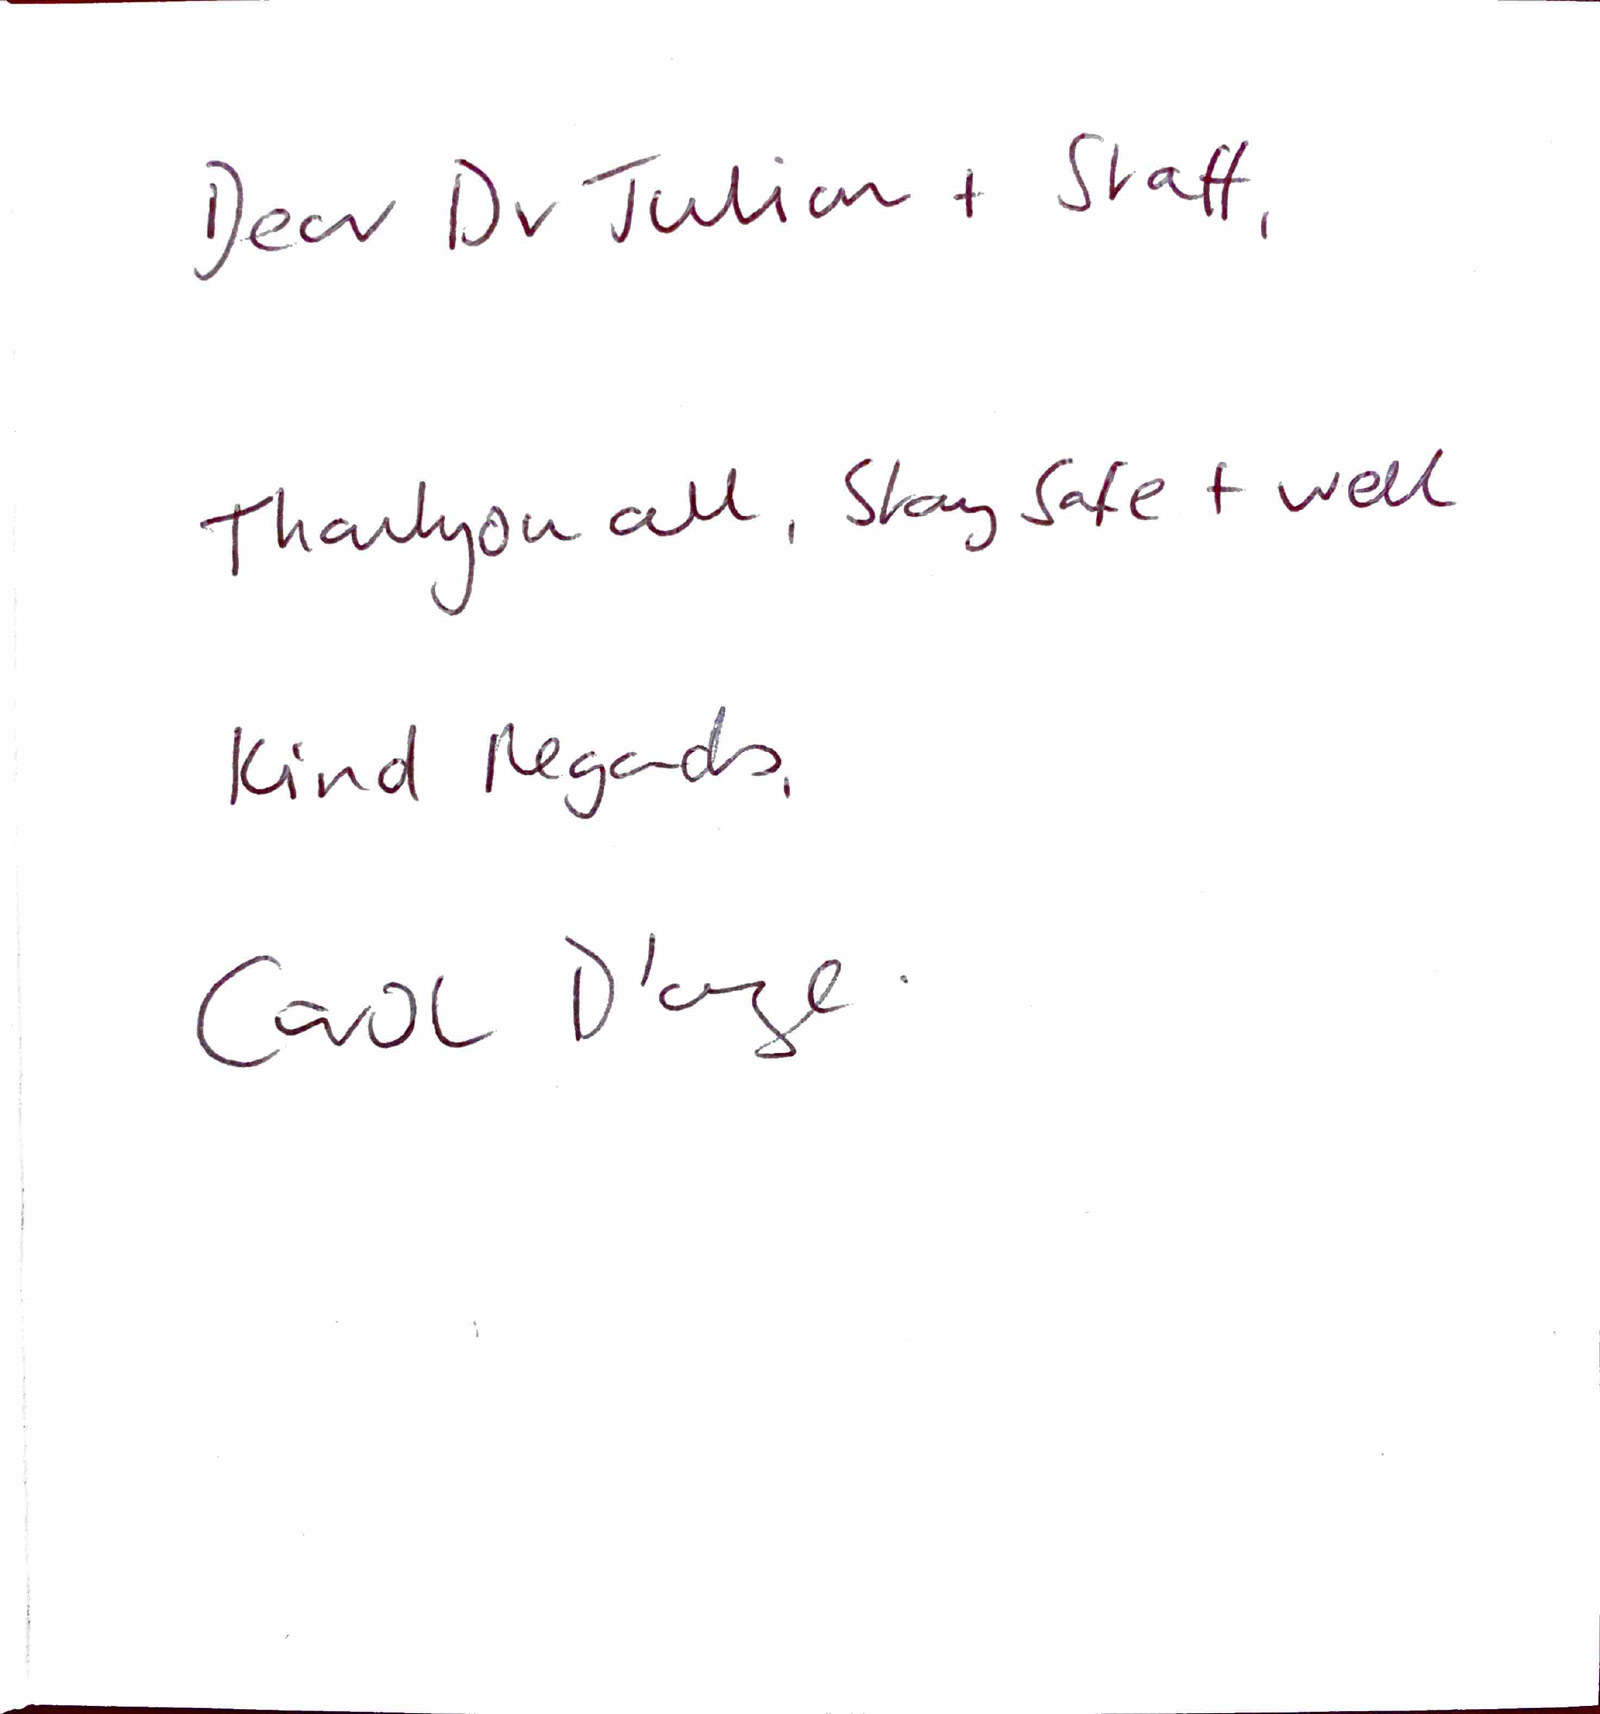 Dear Dr Julian + Staff,
Thankyou all, Stay Safe + well
Kind Regards,
Carol